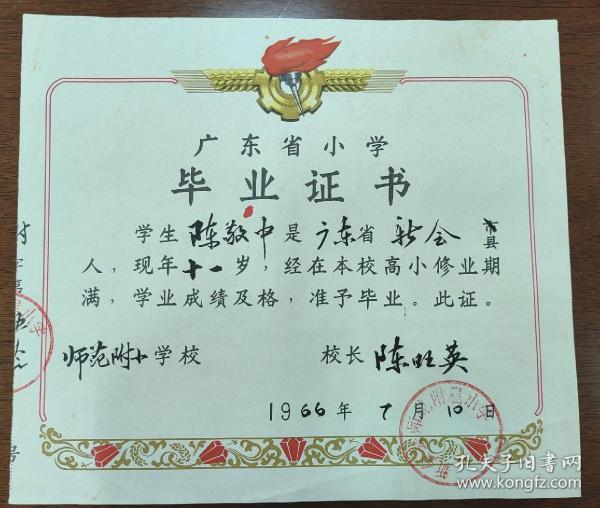 广东省小学
毕业证书
学生陈敬中是广东省新会县
人，现年十一岁，经在本校高小修业期
满，学业成绩及格，准予毕业。此证。
师范附小学校 校长 陈旺英
1966年7月10日
号
孔夫子旧书网
www.kongfz.com